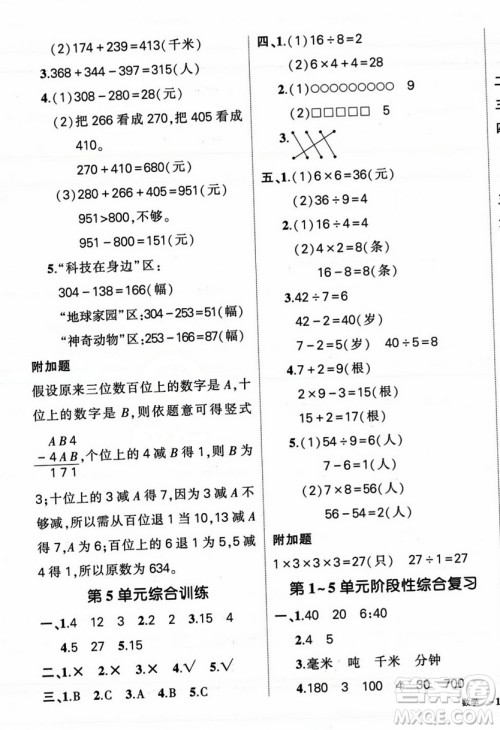 (2)174+239=413(千米)
3.368+344-337=375(人)
4.(1)308-280=28(元)
(2)把 266 看成 270,把 405 看成
410。
270+410=680(元)
(3)280+266+405=951(元)
951>800,不够。
951-800=151(元)
5.“科技在身边”区:
304-138=166(幅)
“地球家园”区:304-51=253(幅)
“神奇动物”区:253-166=87(幅)
附加题
假设原来三位数百位上的数字是 A,十
位上的数字是 B,则依题意可得竖式
A B 4
-4 A B,个位上的 4 减 B 得 1,则 B 为
1 7 1
3;十位上的 3 减 A 得 7,这里 3 减 A 不
够减,所以需要向百位借 1,13 减 A 得
7,A 为 6;百位上的 6 减 1 再减 4 得 1,
符合,所以原数为 634。
第 5 单元综合训练
一、1.4 12 3 2.2 2 3.5
4.27 5.22
二、1.× 2.× 3.× 4.√ 5.√
三、1.B 2.C 3.A 4.C 5.C
四、1.(1)16÷8=2
(2)6×4+4=28
2.(1)○○○○○○○○○ 9
(2)□□□□□ 5
3.
五、1.(1)6×6=36(元)
(2)36÷9=4(元)
2.(1)16÷4=4
(2)4×2=8(条)
16-8=8(条)
3.42÷7=6
47-7=40(岁)
7-2=5(岁) 40÷5=8(岁)
4.7+2=9
2×9=18(根)
18-1=17(根)
5.(1)54÷9=6(人)
7-6=1(人)
(2)7×8=56(人)
56-54=2(人)
附加题
1×3×3×3=27(只) 27÷1=27
第 1~5 单元阶段性综合复习
一、1.40 20 5
2.4 5
3.毫米 吨 千米 分钟
4.180 3 4 80 700
数学
MXQE.COM